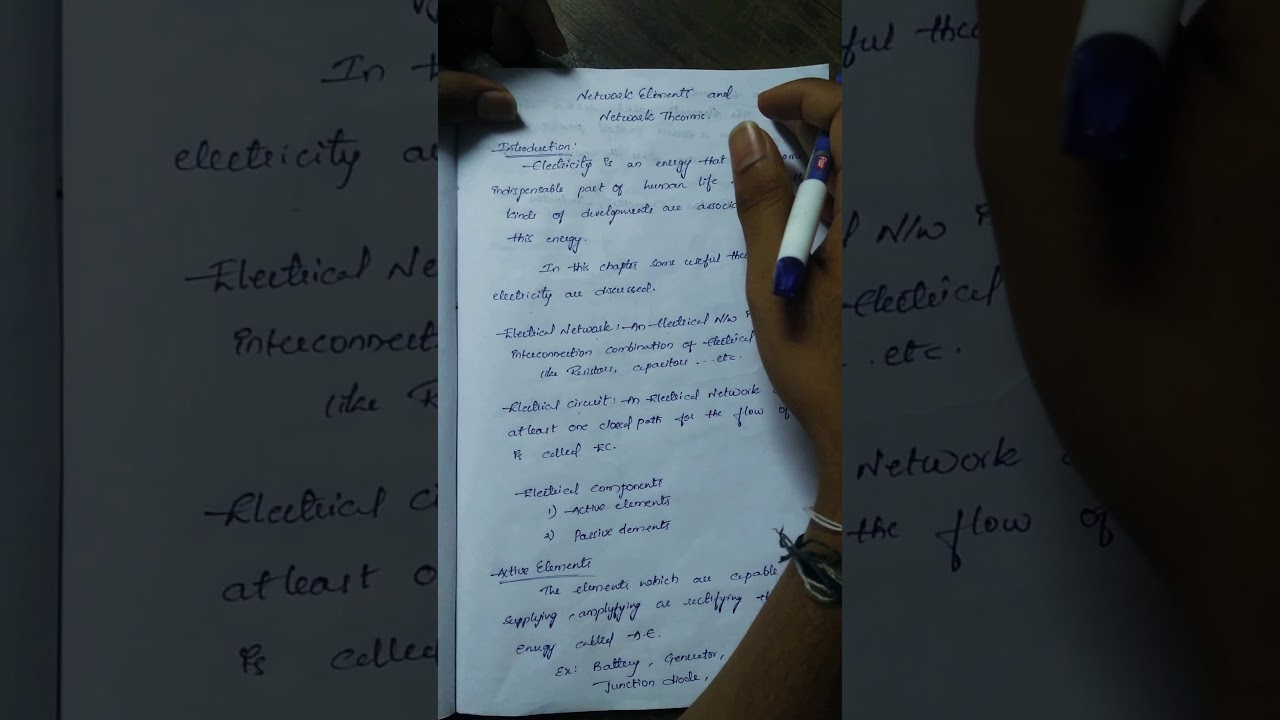 Network Elements and
Network Theorms.
Introduction:
Electricity is an energy that
indispensable part of human life
kinds of developments are associ
this energy.
In this chapter some useful theo
electricity are discussed.
Electrical Network:- An Electrical N/w is
interconnection combination of Electrical
like Resistors, capacitors ... etc.
Electrical circuit:- An Electrical Network
atleast one closed path for the flow of
is called EC.
Electrical components
1) Active elements
2) Passive elements
Active Elements
The elements which are capable
supplying, amplyfying or rectifying the
energy called A.E.
Ex: Battery, Generator,
Junction diode,